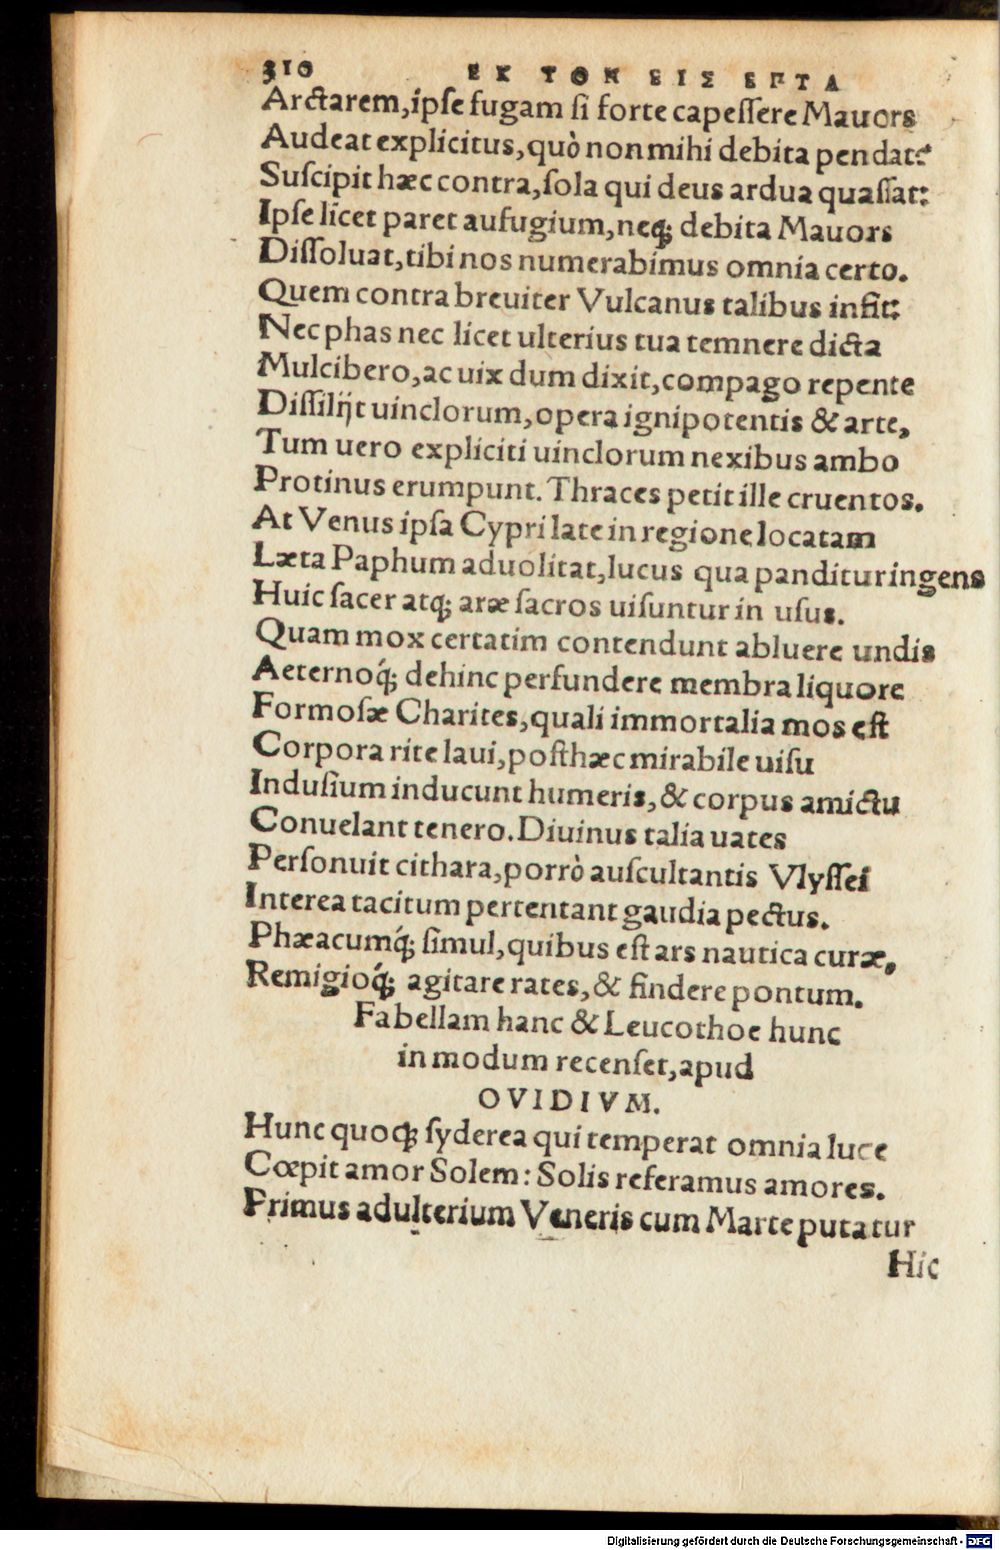 310 ΕΚ ΤΩΝ ΕΙΣ ΕΠΤΑ
Arctarem,ipſe fugam ſi forte capeſſere Mauors
Audeat explicitus,quò non mihi debita pendat:
Suſcipit hæc contra,ſola qui deus ardua quaſſat:
Ipſe licet paret aufugium,neq; debita Mauors
Diſſoluat,tibi nos numerabimus omnia certo.
Quem contra breuiter Vulcanus talibus infit:
Nec phas nec licet ulterius tua temnere dicta
Mulcibero,ac uix dum dixit,compago repente
Diſſilijt uinclorum,opera ignipotentis & arte,
Tum uero expliciti uinclorum nexibus ambo
Protinus erumpunt. Thraces petit ille cruentos.
At Venus ipſa Cypri late in regione locatam
Læta Paphum aduolitat,lucus qua panditur ingens
Huic ſacer atq; aræ ſacros uiſuntur in uſus.
Quam mox certatim contendunt abluere undis
Aeternoq́; dehinc perfundere membra liquore
Formoſæ Charites,quali immortalia mos eſt
Corpora rite laui,poſthæc mirabile uiſu
Induſium inducunt humeris,& corpus amictu
Conuelant tenero. Diuinus talia uates
Perſonuit cithara,porrò auſcultantis Vlyſſei
Interea tacitum pertentant gaudia pectus.
Phæacumq́; ſimul,quibus eſt ars nautica curæ,
Remigioq́; agitare rates,& findere pontum.
Fabellam hanc & Leucothoe hunc
in modum recenſet,apud
OVIDIVM.
Hunc quoq; ſyderea qui temperat omnia luce
Cœpit amor Solem: Solis referamus amores.
Primus adulterium Veneris cum Marte putatur
Hic
Digitalisierung gefördert durch die Deutsche Forschungsgemeinschaft - DFG